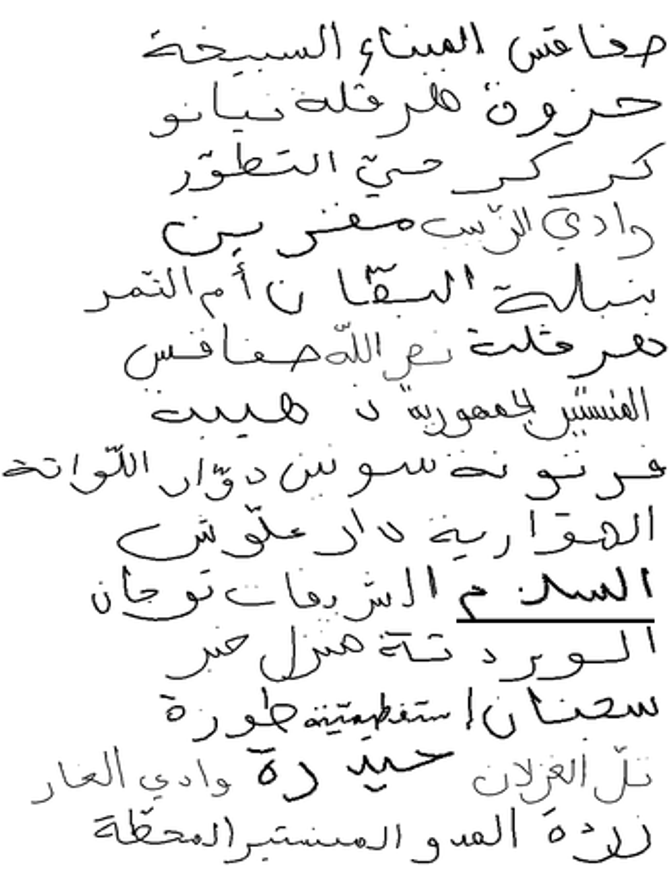 صفاقس الميناء السبيخة
حزوة هرقلة نيانو
كركر حيّ التطوّر
وادي الزّيت مفرين
بنبلة البقّان أم التمر
هرقلة نصر الله صفاقس
المنستير الجمهورية ذهيبة
فرنونة سونين دوّار اللّواتة
الهوارية دار علّوش
السلام الشريفات توجان
الوردتة منزل خير
سمنان طورة
تلّ الغزلان حيدرة وادي الغار
زردة الفدو المنستير المحطّة